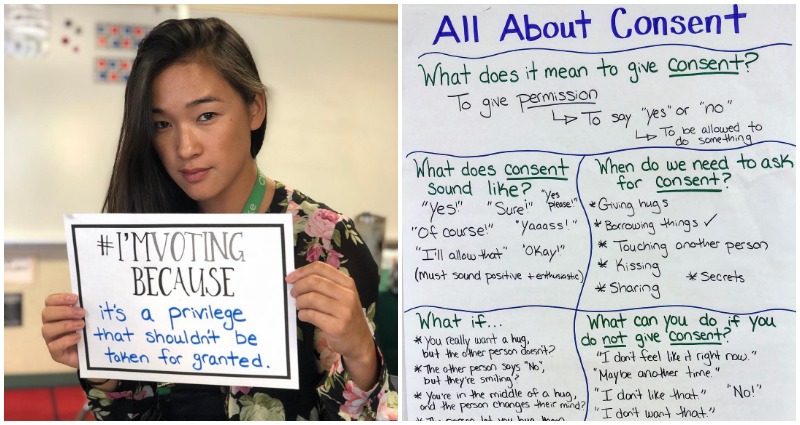 #I'MVOTING
BECAUSE
it's a privilege
that shouldn't be
taken for granted.
All About Consent
What does it mean to give consent?
To give permission
↳ To say "yes" or "no"
↳ To be allowed to
do something
What does consent
sound like?
"Yes!" "Sure!" "Yes please!"
"Of course!" "Yaaass!"
"I'll allow that" "Okay!"
(Must sound positive + enthusiastic)
When do we need to ask
for consent?
* Giving hugs
* Borrowing things ✓
* Touching another person
* Kissing
* Sharing * Secrets
What if...
* You really want a hug,
but the other person doesn't?
* The other person says "No",
but they're smiling?
* You're in the middle of a hug,
and the person changes their mind?
What can you do if you
do not give consent?
"I don't feel like it right now."
"Maybe another time."
"I don't like that." "No!"
"I don't want that."